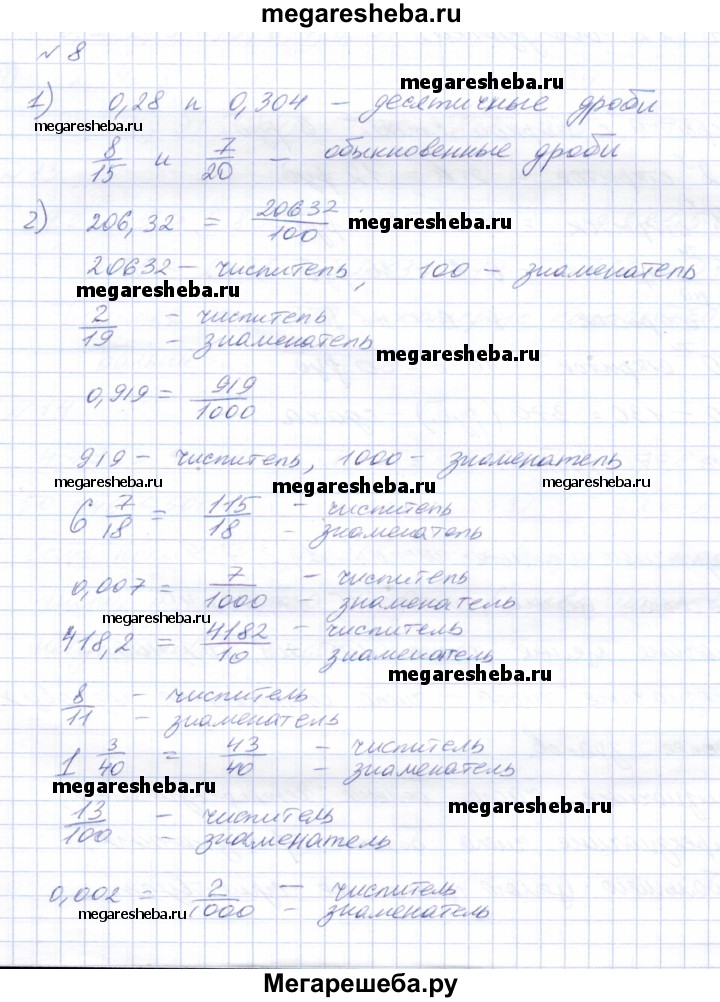 megaresheba.ru
№ 8
megaresheba.ru
1) 0,28 и 0,304 – десятичные дроби
megaresheba.ru
8/15 и 7/20 – обыкновенные дроби
2) 206,32 = 20632/100
megaresheba.ru
20632 – числитель, 100 – знаменатель
megaresheba.ru
2 – числитель
19 – знаменатель
megaresheba.ru
0,919 = 919/1000
919 – числитель, 1000 – знаменатель
megaresheba.ru megaresheba.ru megaresheba.ru
6 7/18 = 115/18 – числитель
– знаменатель
0,007 = 7/1000 – числитель
– знаменатель
megaresheba.ru
418,2 = 4182/10 – числитель
знаменатель
megaresheba.ru
8 – числитель
11 – знаменатель
1 3/40 = 43/40 – числитель
– знаменатель
megaresheba.ru
megaresheba.ru
13 – числитель
100 – знаменатель
0,002 = 2/1000 – числитель
– знаменатель
megaresheba.ru
Мегарешеба.ру